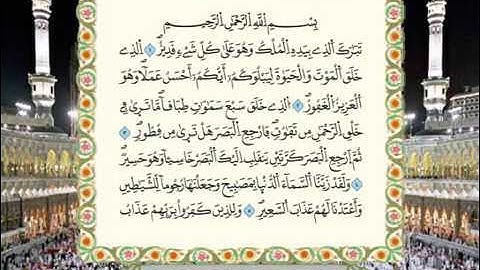 بِسْمِ اللَّهِ الرَّحْمَٰنِ الرَّحِيمِ
تَبَٰرَكَ ٱلَّذِے بِيَدِهِ ٱلْمُلْكُ وَهُوَ عَلَىٰ كُلِّ شَےْءٖ قَدِيرٌ ١ ٱلَّذِے
خَلَقَ ٱلْمَوْتَ وَٱلْحَيَوٰةَ لِيَبْلُوَكُمْۥٓ أَيُّكُمْۥٓ أَحْسَنُ عَمَلاٗ وَهُوَ
ٱلْعَزِيزُ ٱلْغَفُورُ ٢ ٱلَّذِے خَلَقَ سَبْعَ سَمَٰوَٰتٖ طِبَاقاٗ مَّا تَرَىٰ فِے
خَلْقِ ٱلرَّحْمَٰنِ مِن تَفَٰوُتٖ فَٱرْجِعِ ٱلْبَصَرَ هَلْ تَرَىٰ مِن فُطُورٖ ٣
ثُمَّ ٱرْجِعِ ٱلْبَصَرَ كَرَّتَيْنِ يَنقَلِبِ إِلَيْكَ ٱلْبَصَرُ خَاسِئاٗ وَهُوَ حَسِيرٌ
٤ وَلَقَدْ زَيَّنَّا ٱلسَّمَآءَ ٱلدُّنْيَا بِمَصَٰبِيحَ وَجَعَلْنَٰهَا رُجُوماٗ لِّلشَّيَٰطِينِ
وَأَعْتَدْنَا لَهُمْ عَذَابَ ٱلسَّعِيرِ ٥ وَلِلَّذِينَ كَفَرُواْ بِرَبِّهِمْ عَذَابُ